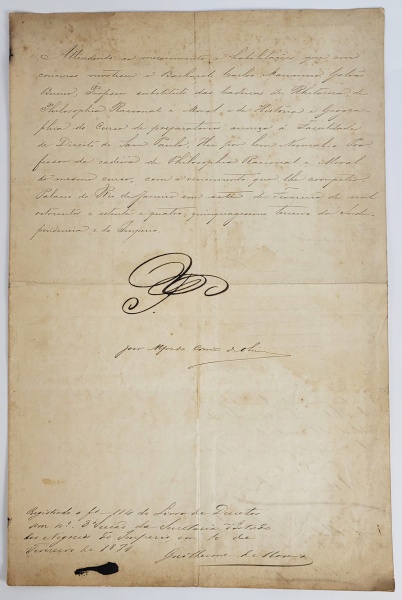 Attendendo ao merecimento e habilitações que em
concurso mostrou o Bacharel Carlos Marianno Galvão
Bueno, Professor substituto das cadeiras de Rhetorica, de
Philosophia Racional e Moral, e de Historia e Geogra-
phia do Curso de preparatorios annexo á Faculdade
de Direito de São Paulo: Hei por bem Nomeal-o Pro-
fessor da cadeira de Philosophia Racional e Moral
do mesmo curso, com o vencimento que lhe competir.
Palacio do Rio de Janeiro em sete de Fevereiro de mil
oitocentos e setenta e quatro, quinquagesimo terceiro da Inde-
pendencia e do Imperio.
João Alfredo Corrêa de Oliveira
Registrado a fl. 114 do Livro de Decretos
3ª Secção da Secretaria d'Estado
dos Negocios do Imperio em de
Fevereiro de 1874.
Guilherme de